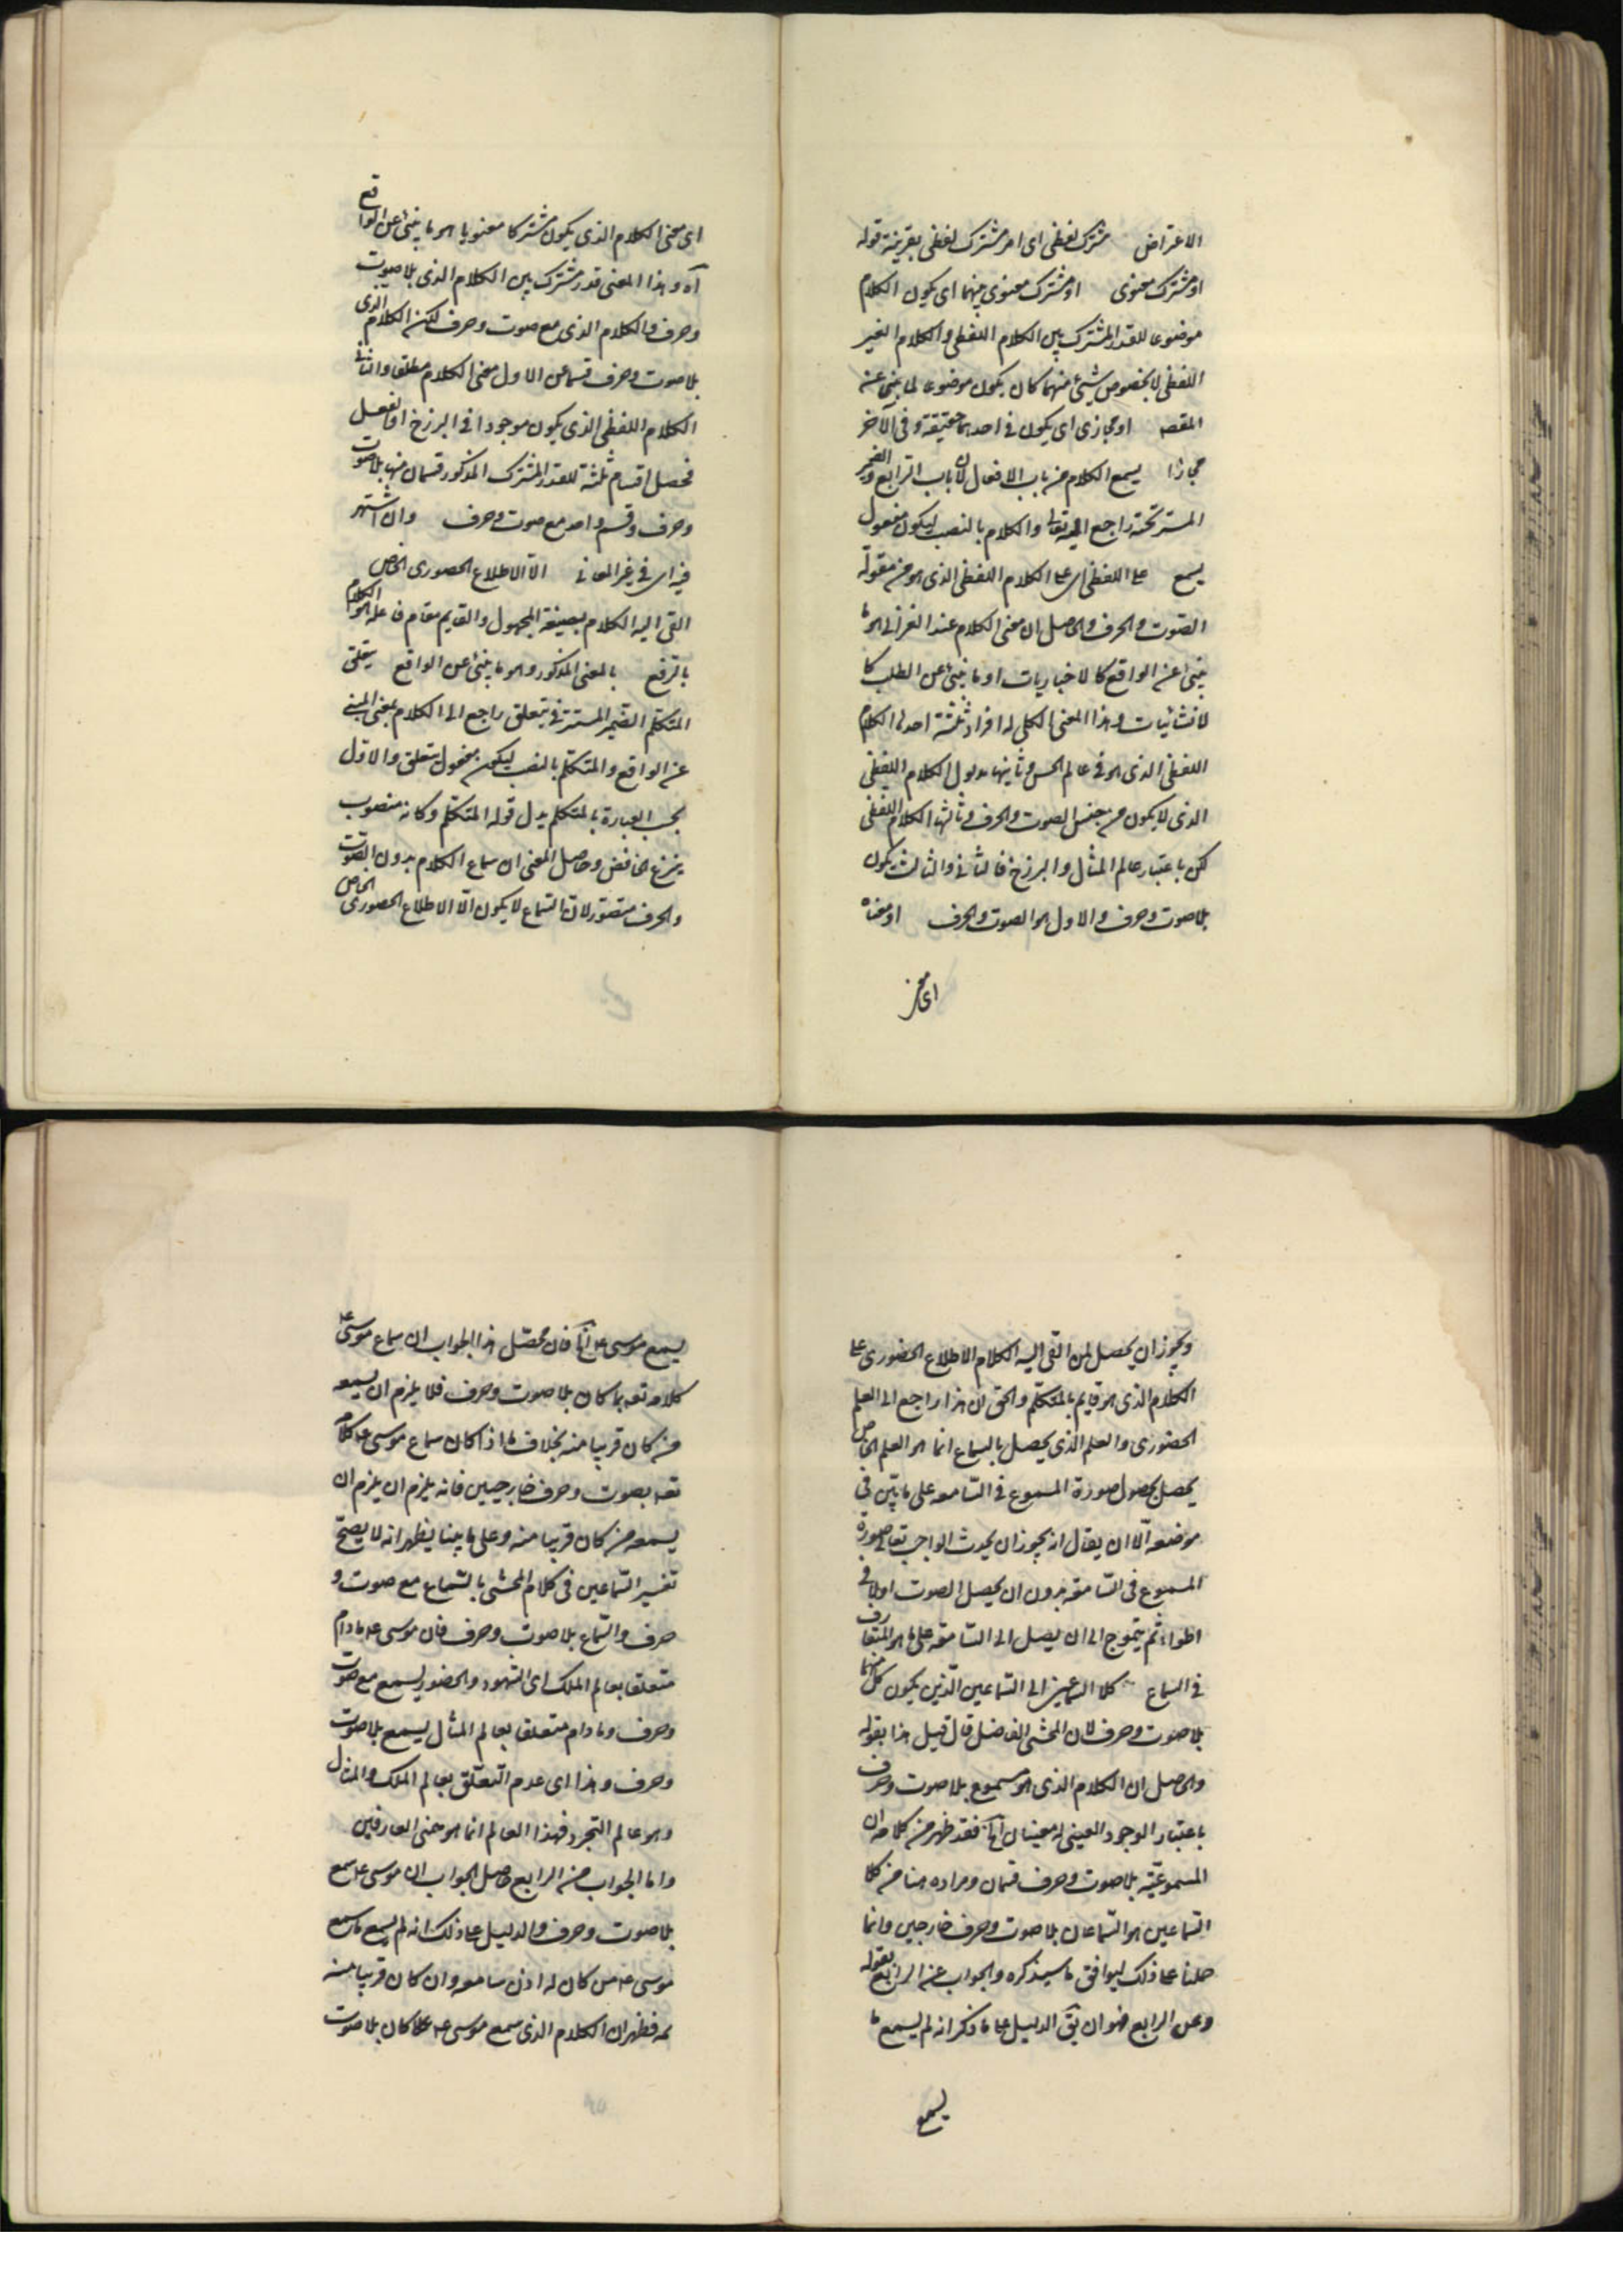 الاعتراض مشترك لفظى اى امر مشترك لفظى بقرينة قوله
او مشترك معنوى او مشترك معنوى بينهما اى يكون الكلام
موضوعا للقدر المشترك بين الكلام اللفظى والكلام الغير
اللفظى لا بخصوص شيئ منهما كان يكون موضوعا لما ينبئ عنه
المقصد او مجازى اى يكون فى احدهما حقيقة وفى الآخر
مجازا يسمع الكلام من باب الافعال لان باب الرابع والضمير
المستتر تحته راجع اليه تعالى والكلام بالنصب ليكون مفعول
يسمع على اللفظى اى على الكلام اللفظى الذى هو من مقولة
الصوت والحرف والحاصل ان معنى الكلام عند الغزالى هو ما
ينبئ عن الواقع كالاخباريات او ما ينبئ عن الطلب كا
لانشائيات وهذا المعنى الكلى له افراد ثلثة احدها الكلام
اللفظى الذى هو فى عالم الحس وثانيها مدلول الكلام اللفظى
الذى لا يكون من جنس الصوت والحرف وثالثها الكلام اللفظى
لكن باعتبار عالم المثال والبرزخ فالثانى والثالث يكون
بلا صوت وحرف والاول هو الصوت والحرف او معناه
اى معنى
اى معنى الكلام الذى يكون مشتركا معنويا هو ما ينبئ عن الواقع
آه وهذا المعنى قدر مشترك بين الكلام الذى بلا صوت
وحرف والكلام الذى مع صوت وحرف لكن الكلام الذى
بلا صوت وحرف قسمان الاول معنى الكلام مطلقا والثانى
الكلام اللفظى الذى يكون موجودا فى البرزخ
فحصل اقسام ثلثة للقدر المشترك المذكور قسمان منها بلا صوت
وحرف وقسم واحد مع صوت وحرف وان اشتهر
فيه اى فى غير المعانى الا الاطلاع الحضورى الخاص
القى اليه الكلام بصيغة المجهول والقايم مقام فاعله هو الكلام
بالرفع بالمعنى المذكور وهو ما ينبئ عن الواقع يتعلق
المتكلم الضمير المستتر فى يتعلق راجع الى الكلام بمعنى المنبئ
عن الواقع والمتكلم بالنصب ليكون مفعول يتعلق والاول
بحسب العبارة بالمتكلم بدل قوله المتكلم وكانه منصوب
بنزع الخافض وحاصل المعنى ان سماع الكلام بدون الصوت
والحرف متصور لان السماع لا يكون الا الاطلاع الحضورى الخاص
ويجوز ان يحصل لمن القى اليه الكلام الاطلاع الحضورى على
الكلام الذى هو قايم بالمتكلم والحق ان هذا راجع الى العلم
الحضورى والعلم الذى يحصل بالسماع انما هو العلم الخاص
يحصل بحصول صورة المسموع فى السامعه على ما بيّن فى
موضعه الا ان يقال انه يجوز ان يحدث الواجب تعالى صورة
المسموع فى السامعة بدون ان يحصل الصوت اولا فى
الهواء ثم يتموج الى ان يصل الى السامعة على ما هو المتعارف
فى السماع كلا السماعين اى السماعين الذين يكون كل منهما
بلا صوت وحرف لان المحشى الفاضل قال قبيل هذا بقوله
والحاصل ان الكلام الذى هو مسموع بلا صوت وحرف
باعتبار الوجود العينى له معنيان آه فقد ظهر من كلامه ان
المسموعية بلا صوت وحرف قسمان ومراده هنا من كلا
السماعين هو السماعان بلا صوت وحرف خارجين وانما
حملنا على ذلك ليوافق ما سيذكره والجواب عن الرابع بقوله
وعن الرابع فهو ان بقى الدليل على ما ذكر انه لم يسمع ما
يسمع
يسمع موسى ع آه فان محصّل هذا الجواب ان سماع موسى ع
كلامه تعه بما كان بلا صوت وحرف فلا يلزم ان يسمعه
من كان قريبا منه بخلاف ما اذا كان سماع موسى ع كلامه
تعه بصوت وحرف خارجيين فانه يلزم ان يلزم ان
يسمعه من كان قريبا منه وعلى ما بينا يظهر انه لا يصح
تفسير السماعين فى كلام المحشى بالسماع مع صوت و
حرف والسماع بلا صوت وحرف فان موسى ع ما دام
متعلقا بعالم الملك اى الشهود والحضور يسمع مع صوت
وحرف وما دام متعلقا بعالم المثال يسمع بلا صوت
وحرف وهذا اى عدم التعلق بعالم الملك والمثال
وهو عالم التجرد فهذا العالم انما هو معنى العارفين
واما الجواب من الرابع حاصل الجواب ان موسى ع سمع
بلا صوت وحرف والدليل على ذلك انه لم يسمع ما سمع
موسى ع من كان له اذن سامعه وان كان قريبا منه
فظهر ان الكلام الذى سمع موسى ع كان بلا صوت